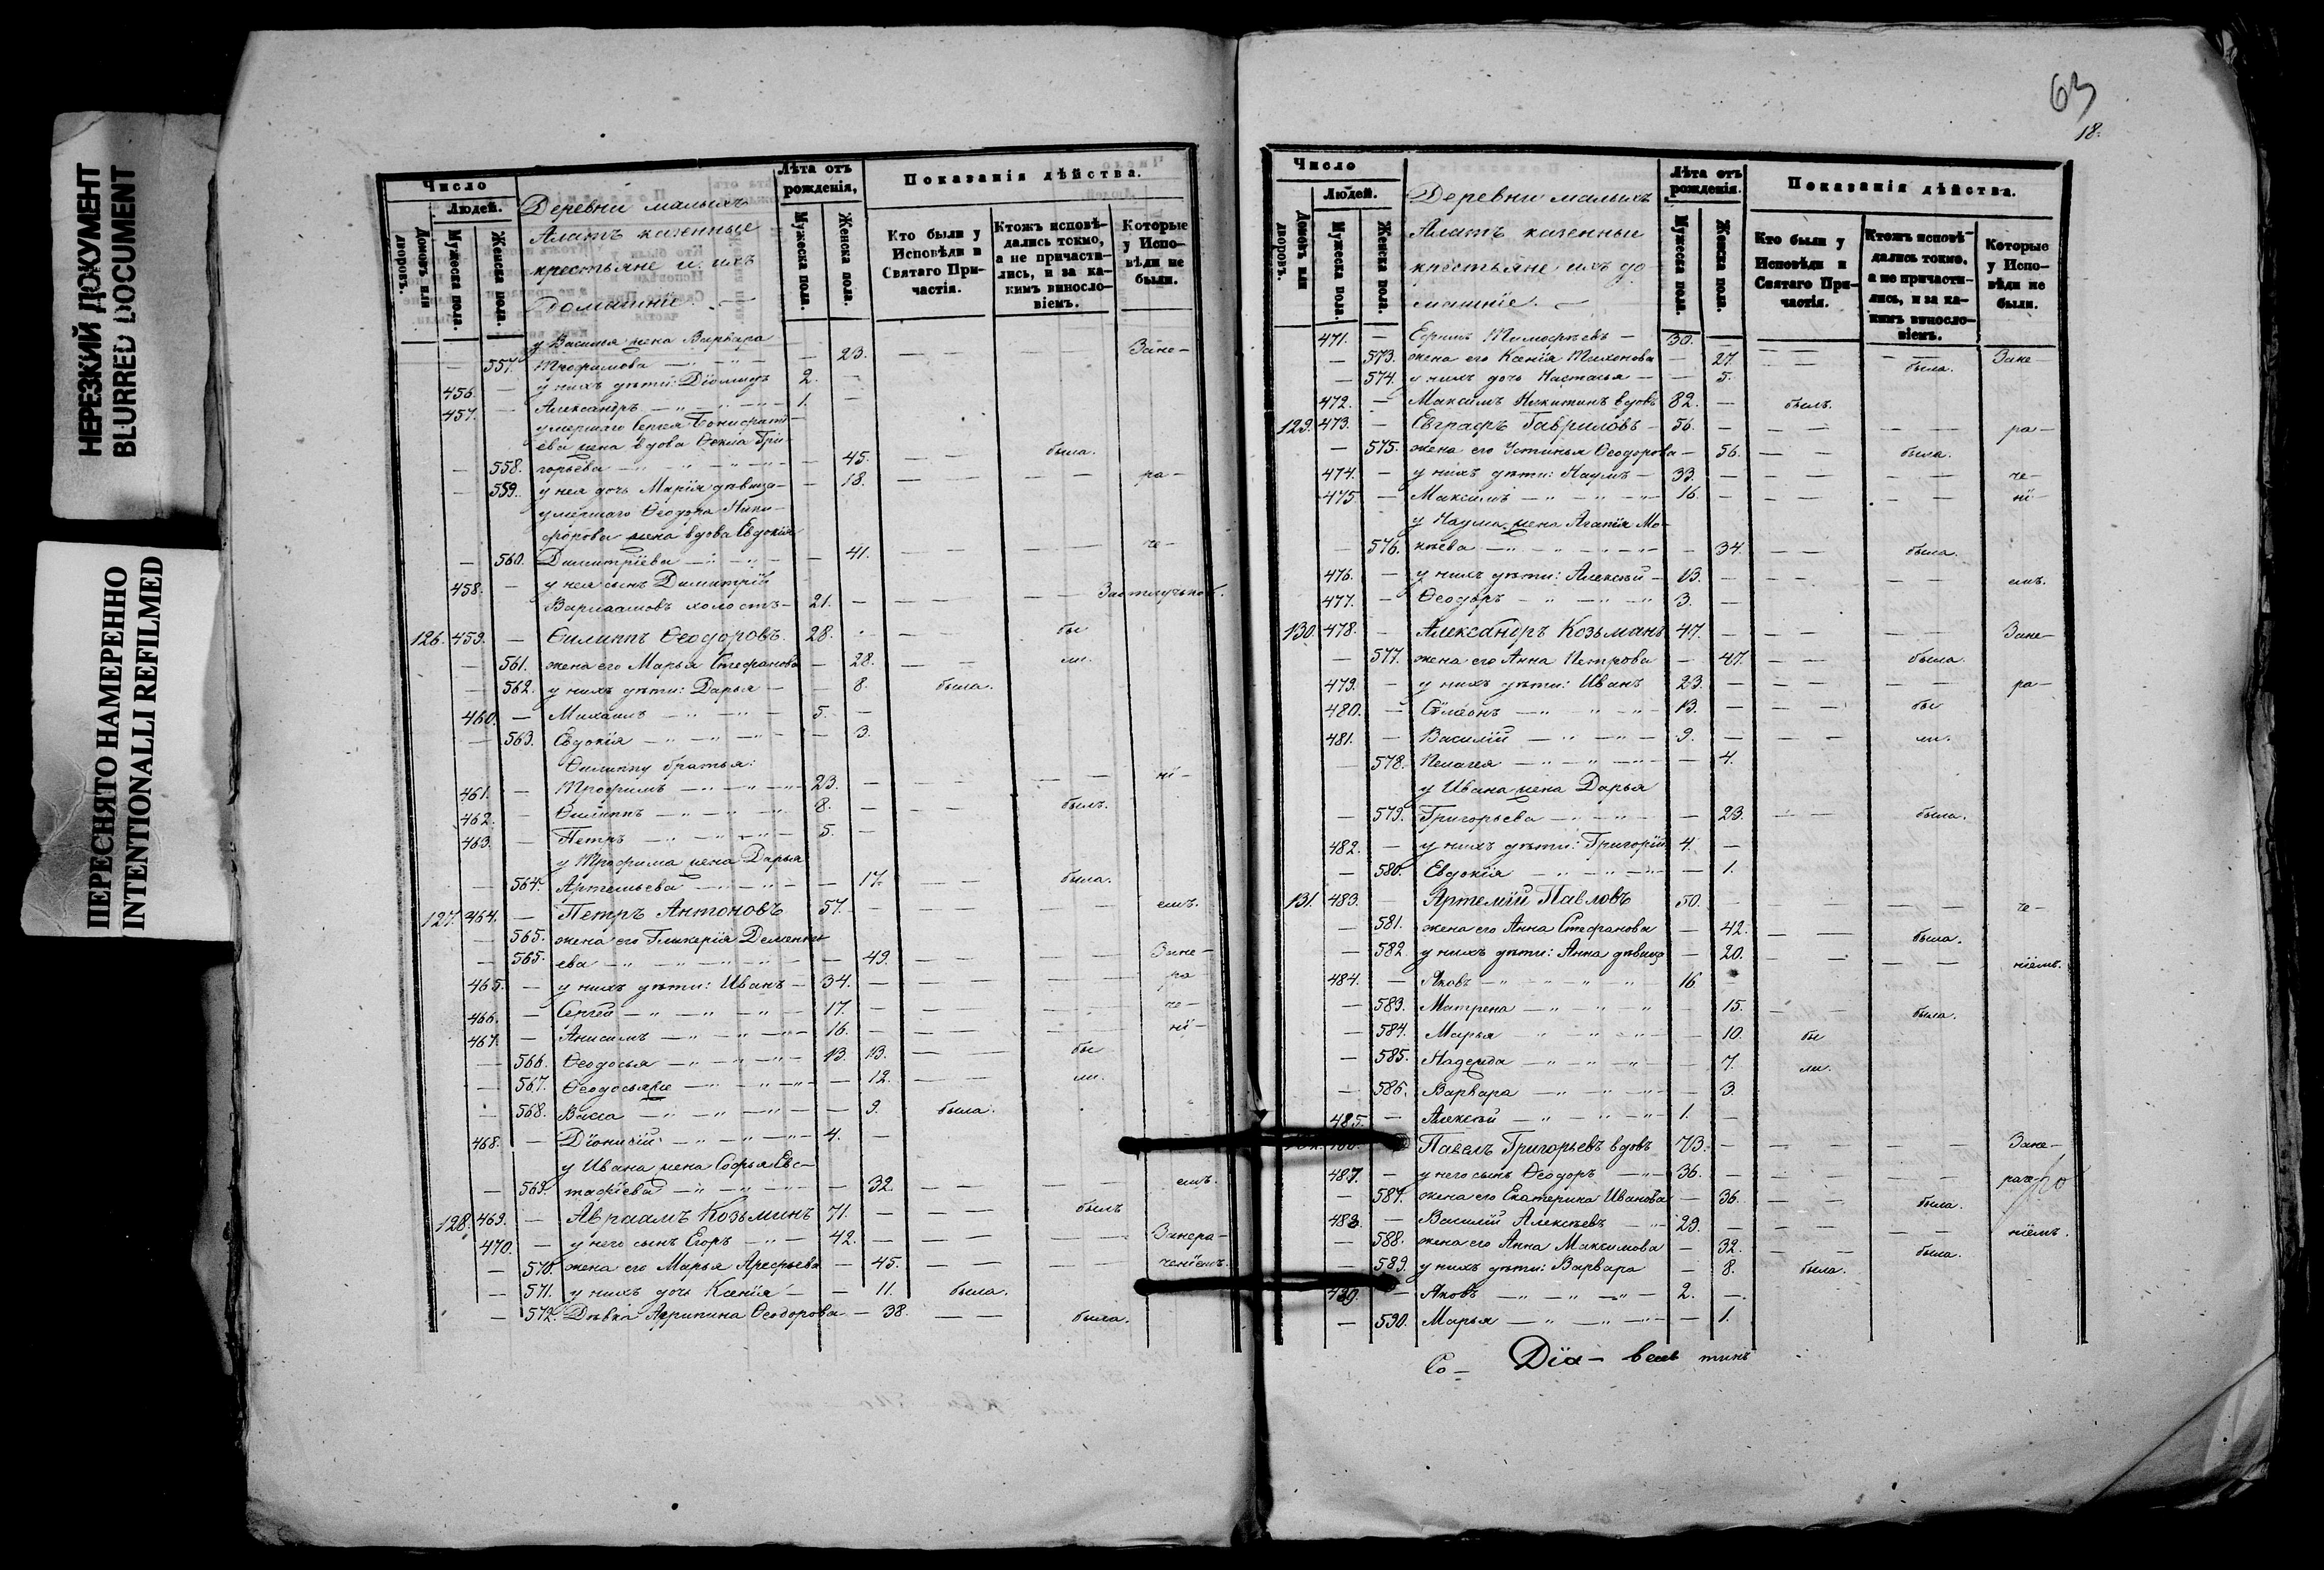 НЕРЕЗКИЙ ДОКУМЕНТ
BLURRED DOCUMENT
ПЕРЕСНЯТО НАМЕРЕННО
INTENTIONALLI REFILMED
Число
Людей.
Домовъ или дворовъ.
Мужеска пола.
Женска пола.
Деревни малыхъ
Алатъ казенные
крестьяне и ихъ
домашніе. —
Лѣта отъ рожденія,
Мужеска пола.
Женска пола.
Показанія дѣйства.
Кто были у Исповѣди и Святаго Причастія.
Ктожъ исповѣдались токмо, а не причастились, и за какимъ винословіемъ.
Которые у Исповѣди не были.
у Василья жена Варвара
— 557. Трофимова — 23. Зане-
456. — у нихъ дѣти: 2. —
457. — Александръ 1. —
умершаго
ева жена вдова Ѳекла Гри-
— 558. горьева — 45. была.
— 559. у нея дочь Марія дѣвица — 18. ра-
умершаго Ѳеодора Ники-
форова жена вдова Евдокія
— 560. Димитріева — 41. че-
458. — у нея сынъ Димитрій
Варлаамовъ холостъ — 21. —
126. 459. — Филиппъ Ѳеодоровъ. 28. бы
— 561. жена его Марья Стефанова — 28. ли.
— 562. у нихъ дѣти: Дарья — 8. была.
460. — Михаилъ 5. —
— 563. Евдокія — 3.
Филиппу братья:
461. — Трофимъ 23. — ні-
462. — Филиппъ 8. — былъ.
463. — Петръ 5. —
у Трофима жена Дарья
— 564. Артемьева — 17. была.
127. 464. — Петръ Антоновъ 57. — емъ.
— 565. жена его Гликерія Дементь
— 565. ева — 49. Зане-
465. — у нихъ дѣти: Иванъ — 34. — ра-
466. — Сергей 17. — че-
467. — Анисимъ 16. — ні-
— 566. Ѳеодосья 13. 13. бы
— 567. Ѳеодосья же — 12. ли.
— 568. Васса — 9. была.
468. — Діонисій 4. —
у Ивана жена Софья Евс-
— 569. тафіева — 32. емъ.
128. 469. — Авраамъ Козьминъ 71. — былъ
470. — у него сынъ Егоръ 42. — Занера-
— 570. жена его Марья Арефьева — 45. ченіемъ.
— 571. у нихъ дочь Ксенія — 11. была.
— 572. Дѣвка Агрипина Ѳеодорова — 38. была.
63
18.
Число
Людей.
Домовъ или дворовъ.
Мужеска пола.
Женска пола.
Деревни малыхъ
Алатъ казенные
крестьяне ихъ до
машніе. —
Лѣта отъ рожденія.
Мужеска пола.
Женска пола.
Показанія дѣйства.
Кто были у Исповѣди и Святаго Причастія.
Ктожъ исповѣдались токмо, а не причастились, и за какимъ винословіемъ.
Которые у Исповѣди не были.
471. — Ефимъ Тимофѣевъ — 30. — Зане-
— 573. жена его Ксенія Тихонова — 27. была.
— 574. у нихъ дочь Настасья — 5.
472. — Максимъ Никитинъ вдовъ 82. — былъ.
129. 473. — Евграфъ Гавриловъ — 56. — ра-
— 575. жена его Устинья Ѳеодорова — 56. была.
474. — у нихъ дѣти: Наумъ — 33. — че-
475. — Максимъ 16. — ні-
у Наума жена Агапія Мо-
— 576. кѣева — 34. была.
476. — у нихъ дѣти: Алексѣй — 13. — емъ.
477. — Ѳеодоръ 3. —
130. 478. — Александръ Козьминъ 47. — Зане-
— 577. жена его Анна Петрова — 47. была.
479. — у нихъ дѣти: Иванъ 23. — ра-
480. — Сѵмеонъ 13. — бы
481. — Василій 9. — ли.
578. Пелагея — 4.
у Ивана жена Дарья
— 579. Григорьева — 23. была.
482. — у нихъ дѣти: Григорій 4. —
— 580. Евдокія — 1.
131. 483. — Артемій Павловъ 50. — че-
— 581. жена его Анна Стефанова — 42. была.
— 582 у нихъ дѣти: Анна дѣвица — 20. ніемъ.
484. — Яковъ 16 —
— 583. Матрена — 15. была.
— 584. Марья — 10. бы
— 585. Надежда — 7. ли.
— 586. Варвара — 3.
485. — Алексѣй 1. —
Павелъ Григорьевъ вдовъ 73. — Зане-
487. — у него сынъ Ѳеодоръ 36. —
— 587. жена его Екатерина Иванова — 36. была.
488. — Василій Алексѣевъ 29. — ніемъ.
— 588. жена его Анна Максимова — 32. была.
— 589. у нихъ дѣти: Варвара — 8. была.
489. — Яковъ 2. —
— 590. Марья — 1.
Со- Діа-